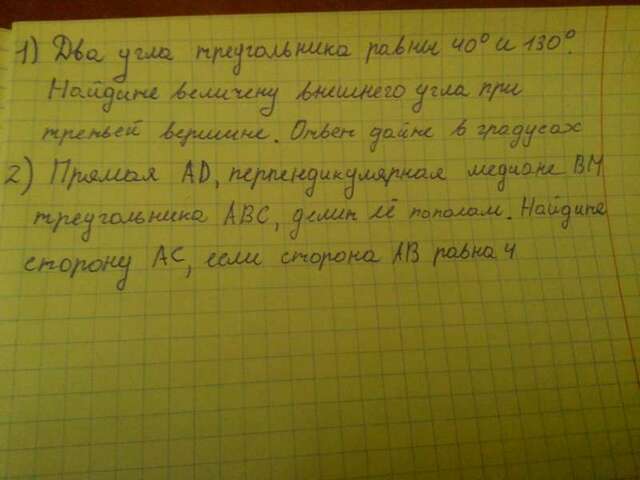 1) Два угла треугольника равны 40° и 130°.
Найдите величену внешнего угла при
третьей вершине. Ответ дайте в градусах
2) Прямая AD, перпендикулярная медиане BM
треугольника ABC, делит её пополам. Найдите
сторону AC, если сторона AB равна 4